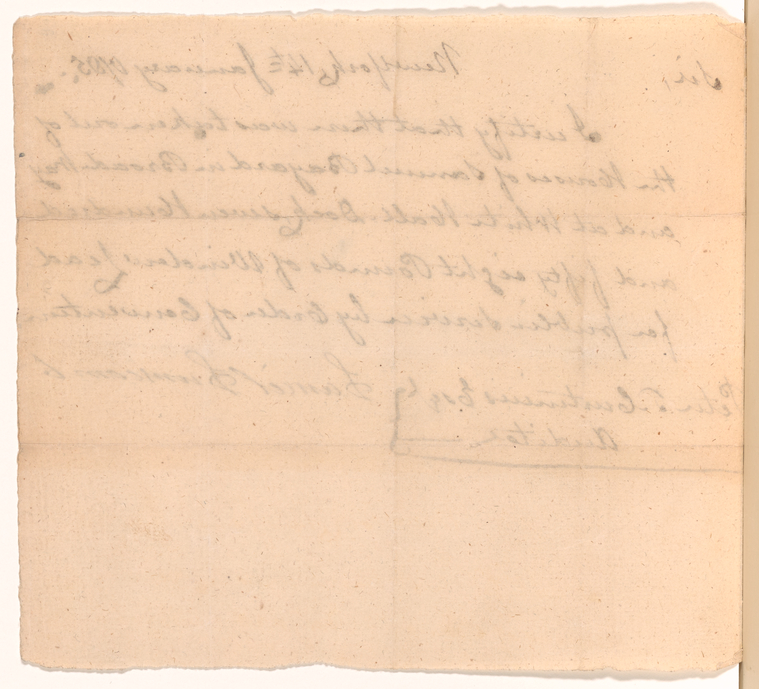 Sir, New York 14th January 1785.
I certify that there was taken out of
the House of Samuel Bayard in Broad Way
and at White Hall Dock seven Hundred
and fifty eight Pounds of Window Lead
for publick Service by Order of Convention.
Daniel
Peter T. Curtenius Esqr
Auditor